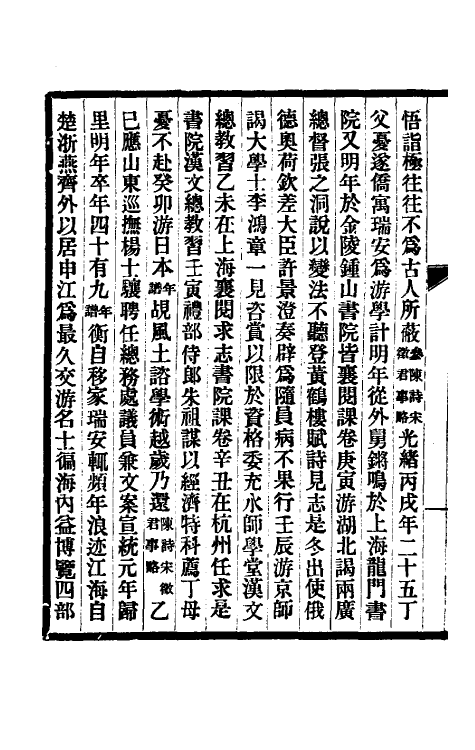 悟詣極往往不爲古人所蔽參陳詩宋徵君事略光緒丙戌年二十五丁
父憂遂僑寓瑞安爲游學計明年從外舅鏘鳴於上海龍門書
院又明年於金陵鍾山書院皆襄閱課卷庚寅游湖北謁兩廣
總督張之洞說以變法不聽登黃鶴樓賦詩見志是冬出使俄
德奧荷欽差大臣許景澄奏辟爲隨員病不果行壬辰游京師
謁大學士李鴻章一見咨賞以限於資格委充水師學堂漢文
總教習乙未在上海襄閱求志書院課卷辛丑在杭州任求是
書院漢文總教習壬寅禮部侍郎朱祖謀以經濟特科薦丁母
憂不赴癸卯游日本年譜覘風土諮學術越歲乃還陳詩宋徵君事略乙
巳應山東巡撫楊士驤聘任總務處議員兼文案宣統元年歸
里明年卒年四十有九年譜衡自移家瑞安輒頻年浪迹江海自
楚浙燕齊外以居申江爲最久交游名士徧海內益博覽四部